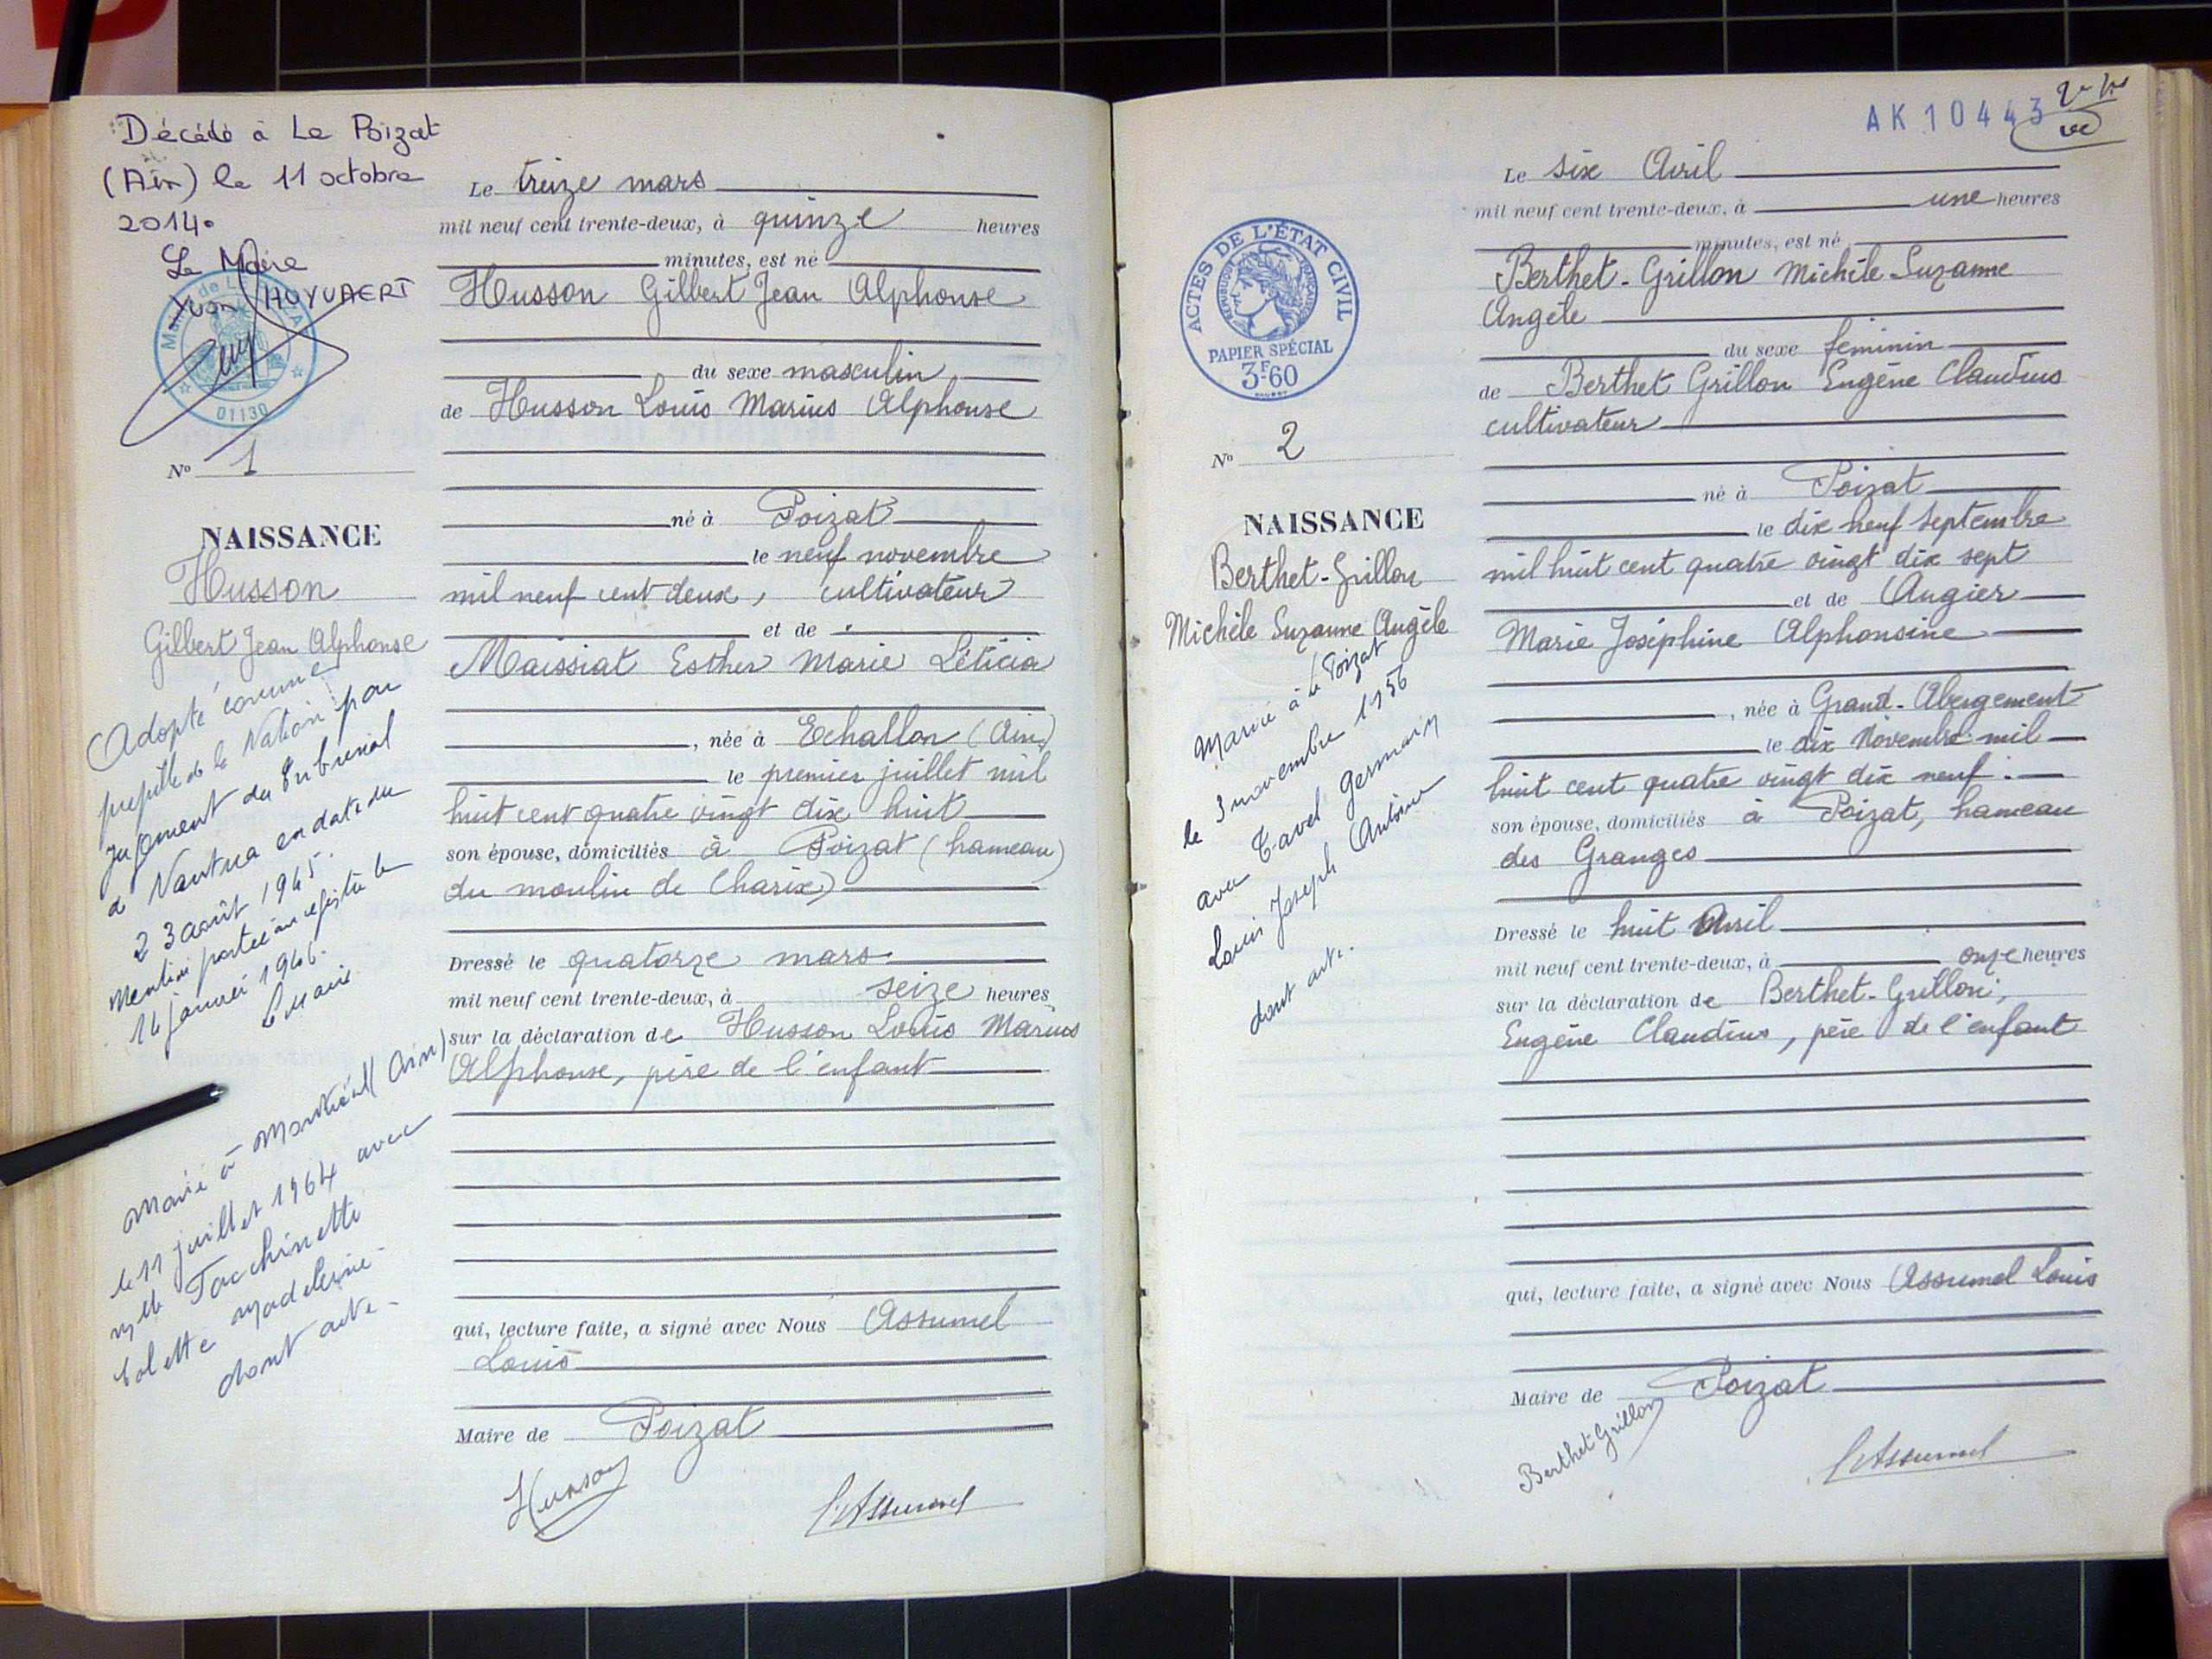 Décédé à Le Poizat
(Ain) le 11 octobre
2014.
Le Maire
Yvon HUYVAERT
01130
N° 1
NAISSANCE
Husson
Gilbert Jean Alphonse
Adopté comme
pupille de la Nation par
jugement du tribunal
de Nantua en date du
23 août 1945.
Mention portée au registre le
16 janvier 1946.
Le Maire
Marié à Montréal (Ain)
le 11 juillet 1964 avec
Mlle Tacchinetti
Colette Madeleine
dont acte.
Le treize mars
mil neuf cent trente-deux, à quinze heures
minutes, est né
Husson Gilbert Jean Alphonse
du sexe masculin
de Husson Louis Marius Alphonse
né à Poizat
le neuf novembre
mil neuf cent deux, cultivateur
et de
Maissiat Esther Marie Léticia
, née à Echallon (Ain)
le premier juillet mil
huit cent quatre vingt dix huit
son épouse, domiciliés à Poizat (hameau
du moulin de Charix)
Dressé le quatorze mars
mil neuf cent trente-deux, à seize heures
sur la déclaration de Husson Louis Marius
Alphonse, père de l'enfant
qui, lecture faite, a signé avec Nous Assumel
Louis
Maire de Poizat
Husson
L Assumel
AK 10443
ACTES DE L'ÉTAT CIVIL
RÉPUBLIQUE FRANÇAISE
PAPIER SPÉCIAL
3F60
N° 2
NAISSANCE
Berthet-Grillon
Michèle Suzanne Angèle
Mariée à le Poizat
le 3 novembre 1956
avec Tavel Germain
Louis Joseph Antoine
dont acte.
Le six Avril
mil neuf cent trente-deux, à une heures
minutes, est né
Berthet-Grillon Michèle Suzanne
Angèle
du sexe féminin
de Berthet Grillon Eugène Claudius
cultivateur
né à Poizat
le dix neuf septembre
mil huit cent quatre vingt dix sept
et de Augier
Marie Joséphine Alphonsine
, née à Grand-Abergement
le dix Novembre mil
huit cent quatre vingt dix neuf.
son épouse, domiciliés à Poizat, hameau
des Granges
Dressé le huit Avril
mil neuf cent trente-deux, à onze heures
sur la déclaration de Berthet-Grillon,
Eugène Claudius, père de l'enfant
qui, lecture faite, a signé avec Nous Assumel Louis
Maire de Poizat
Berthet-Grillon
L Assumel